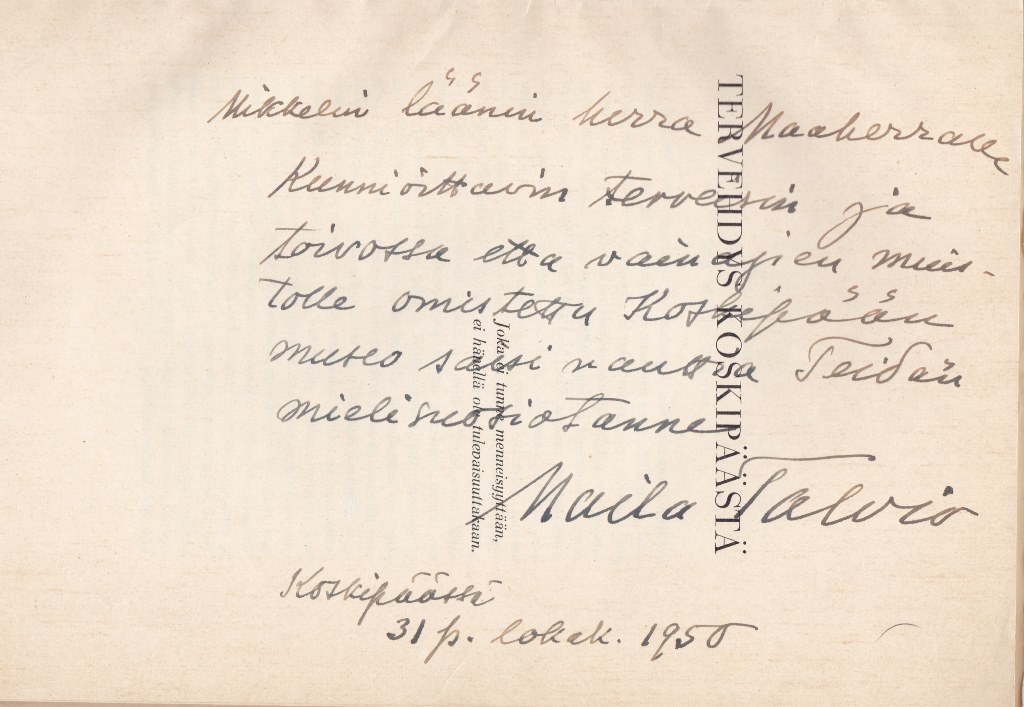 Mikkelin läänin herra Maaherralle
Kunnioittavin terveisin ja
toivossa että vainajien muis-
tolle omistettu Koskipään
museo saisi nauttia Teidän
mielisuosiotanne
Maila Talvio
Koskipäässä
31 p. lokak. 1950
TERVEHDYS KOSKIPÄÄSTÄ
Joka ei tunne menneisyyttään,
ei hänellä ole tulevaisuuttakaan.